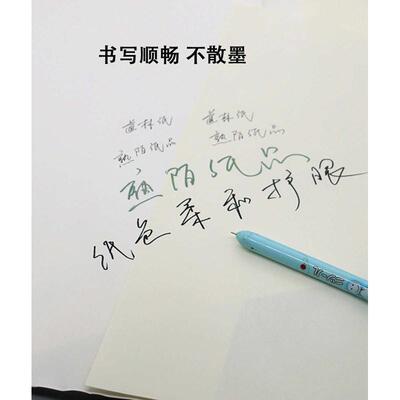 书写顺畅 不散墨
道林纸 道林纸
熟陌纸品 熟陌纸品
熟陌纸品
纸色柔和护眼